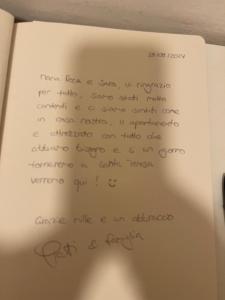 Maria Rosa e Sara, vi ringrazio
per tutto, siamo stati molto
contenti e ci siamo sentiti come
in casa nostra, il apartamento
e attrezzato con tutto che
abbiamo bisogno e si un giorno
torneremo a Santa Teresa
verremo qui! ☺
Grazie mille e un abbraccio
& famiglia